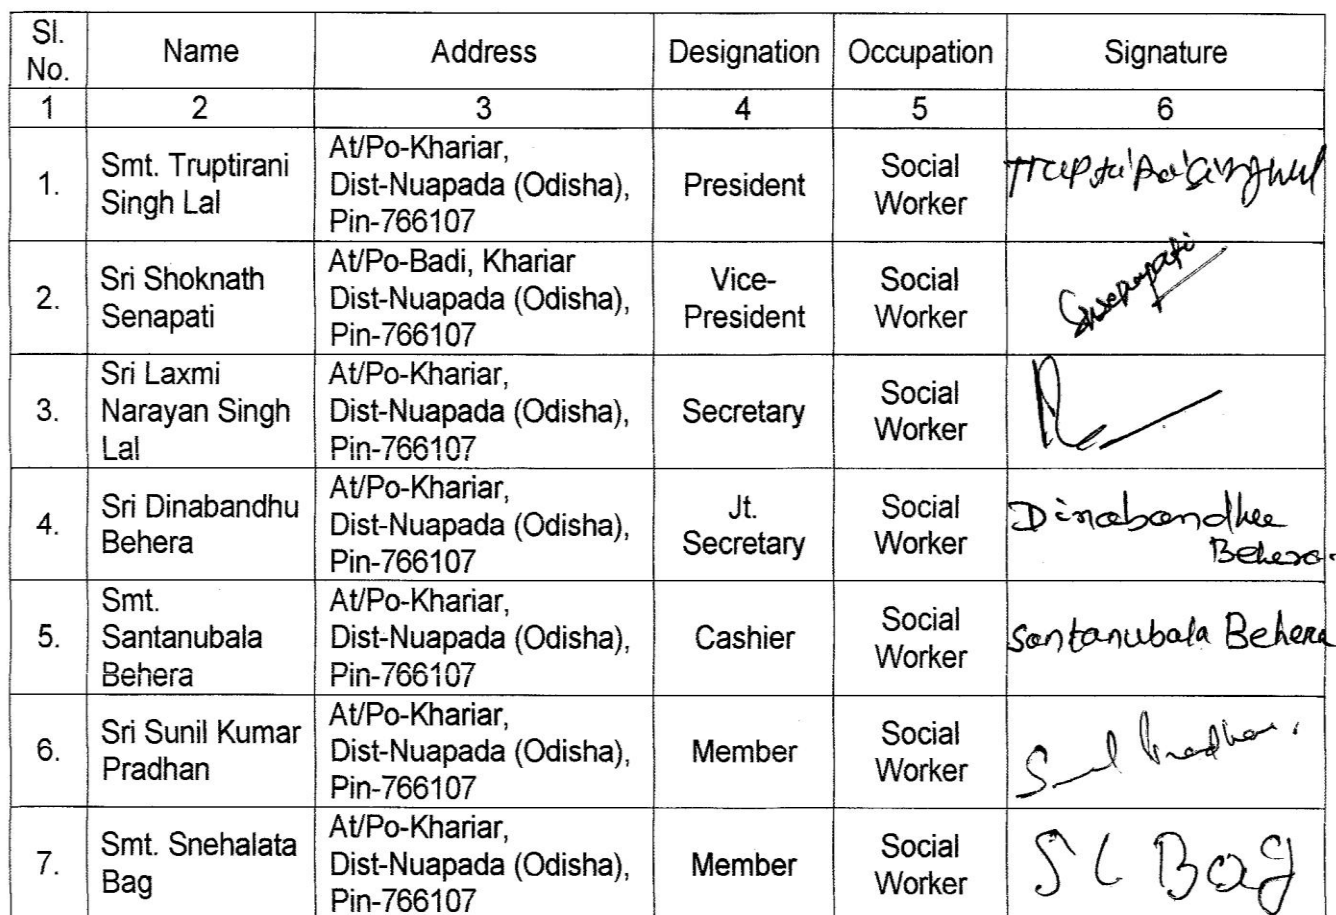 Sl. No. Name Address Designation Occupation Signature
1 2 3 4 5 6
1. Smt. Truptirani Singh Lal At/Po-Khariar, Dist-Nuapada (Odisha), Pin-766107 President Social Worker
2. Sri Shoknath Senapati At/Po-Badi, Khariar Dist-Nuapada (Odisha), Pin-766107 Vice-President Social Worker Senapati
3. Sri Laxmi Narayan Singh Lal At/Po-Khariar, Dist-Nuapada (Odisha), Pin-766107 Secretary Social Worker
4. Sri Dinabandhu Behera At/Po-Khariar, Dist-Nuapada (Odisha), Pin-766107 Jt. Secretary Social Worker Dinabandhu Behera.
5. Smt. Santanubala Behera At/Po-Khariar, Dist-Nuapada (Odisha), Pin-766107 Cashier Social Worker Santanubala Behera
6. Sri Sunil Kumar Pradhan At/Po-Khariar, Dist-Nuapada (Odisha), Pin-766107 Member Social Worker Sunil Pradhan.
7. Smt. Snehalata Bag At/Po-Khariar, Dist-Nuapada (Odisha), Pin-766107 Member Social Worker S L Bag